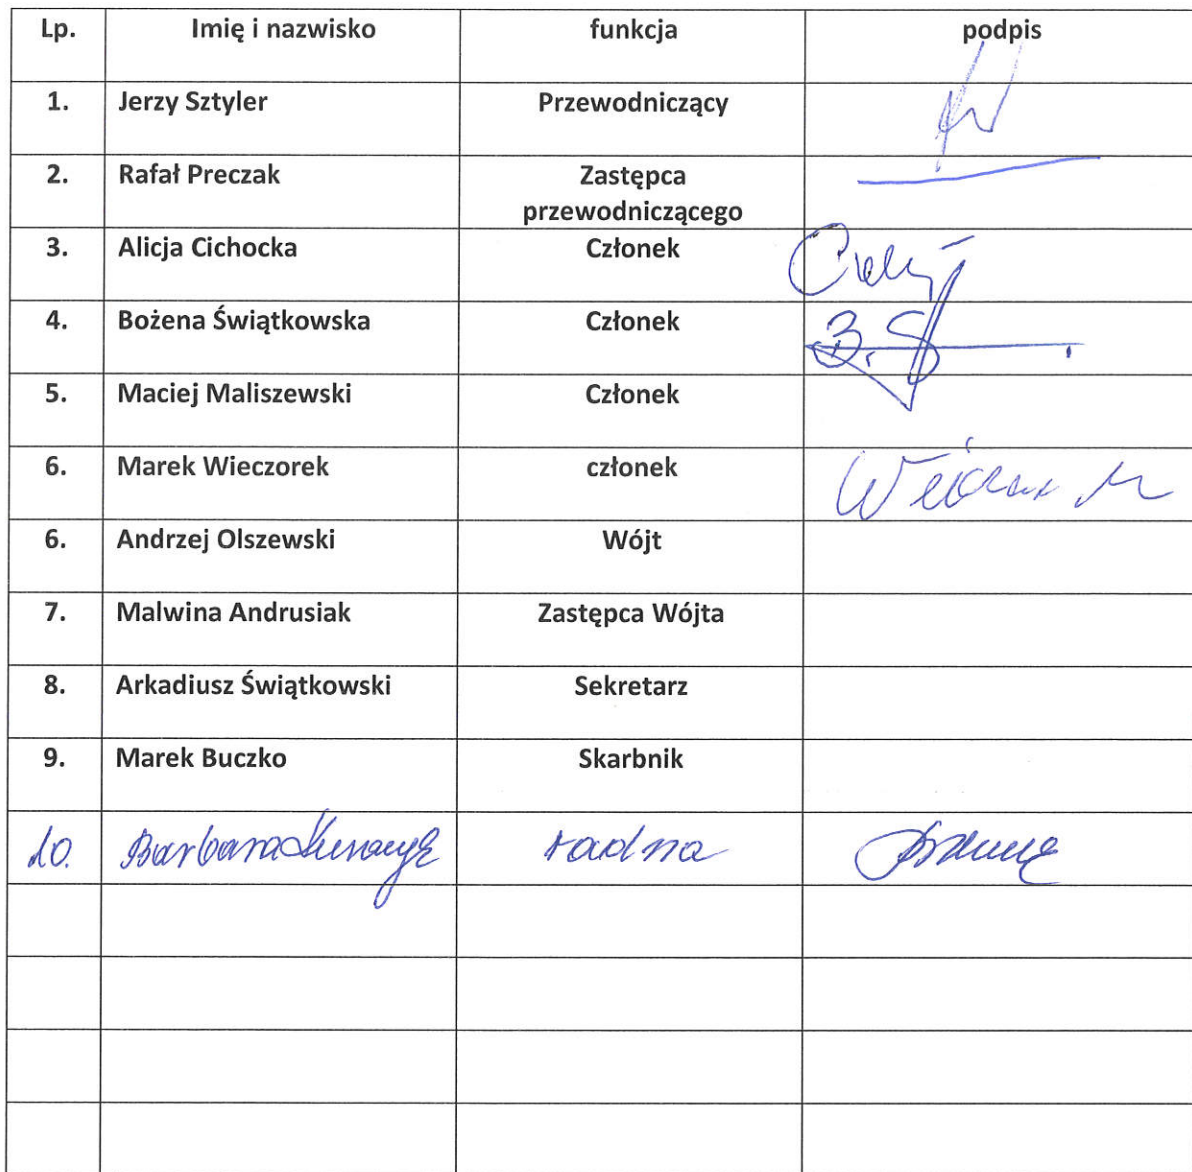 Lp. Imię i nazwisko funkcja podpis
1. Jerzy Sztyler Przewodniczący
2. Rafał Preczak Zastępca
przewodniczącego
3. Alicja Cichocka Członek
4. Bożena Świątkowska Członek B. Ś
5. Maciej Maliszewski Członek
6. Marek Wieczorek członek
6. Andrzej Olszewski Wójt
7. Malwina Andrusiak Zastępca Wójta
8. Arkadiusz Świątkowski Sekretarz
9. Marek Buczko Skarbnik
10. Barbara radna